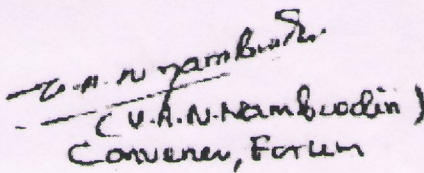 V.A.N Namboodiri
(V.A.N. Namboodiri)
Convener, Forum